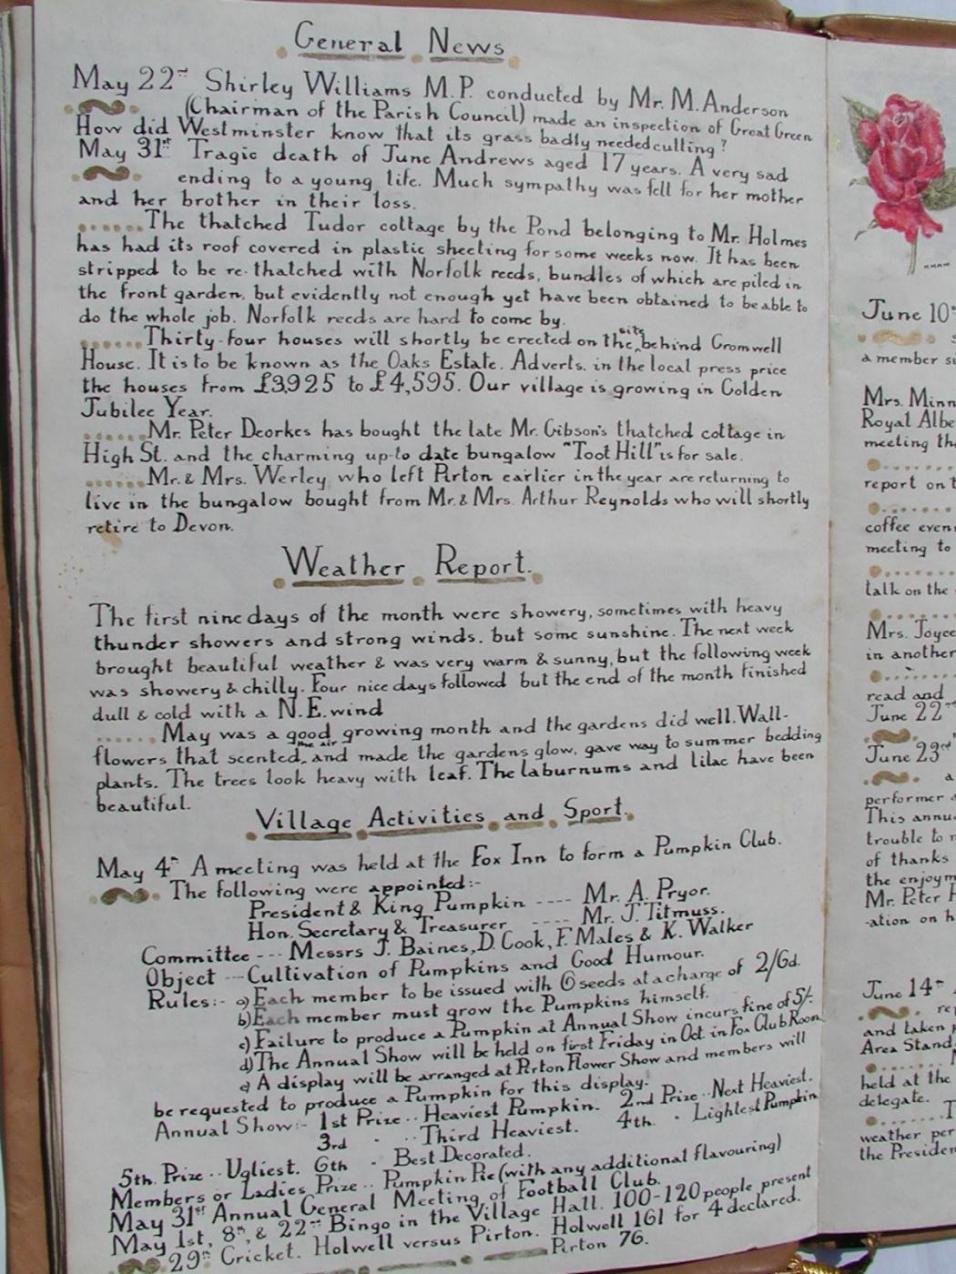 General News
May 22nd Shirley Williams M.P. conducted by Mr. M. Anderson
(Chairman of the Parish Council) made an inspection of Great Green
How did Westminster know that its grass badly needed cutting?
May 31st Tragic death of June Andrews aged 17 years. A very sad
ending to a young life. Much sympathy was felt for her mother
and her brother in their loss.
......The thatched Tudor cottage by the Pond belonging to Mr. Holmes
has had its roof covered in plastic sheeting for some weeks now. It has been
stripped to be re-thatched with Norfolk reeds, bundles of which are piled in
the front garden, but evidently not enough yet have been obtained to be able to
do the whole job. Norfolk reeds are hard to come by.
......Thirty-four houses will shortly be erected on the site behind Cromwell
House. It is to be known as the Oaks Estate. Adverts. in the local press price
the houses from £3,925 to £4,595. Our village is growing in Golden
Jubilee Year.
......Mr. Peter Deorkes has bought the late Mr. Gibson's thatched cottage in
High St. and the charming up-to date bungalow "Toot Hill" is for sale.
......Mr. & Mrs. Werley who left Pirton earlier in the year are returning to
live in the bungalow bought from Mr. & Mrs. Arthur Reynolds who will shortly
retire to Devon.
Weather Report.
The first nine days of the month were showery, sometimes with heavy
thunder showers and strong winds. but some sunshine. The next week
brought beautiful weather & was very warm & sunny, but the following week
was showery & chilly. Four nice days followed but the end of the month finished
dull & cold with a N.E. wind
...... May was a good growing month and the gardens did well. Wall-
flowers that scented the air and made the gardens glow, gave way to summer bedding
plants. The trees look heavy with leaf. The laburnums and lilac have been
beautiful.
Village Activities and Sport.
May 4th A meeting was held at the Fox Inn to form a Pumpkin Club.
The following were appointed:-
President & King Pumpkin ---- Mr. A. Pryor.
Hon. Secretary & Treasurer ---- Mr. J. Titmuss.
Committee --- Messrs J. Baines, D. Cook, F. Males & K. Walker
Object --- Cultivation of Pumpkins and Good Humour.
Rules:- a) Each member to be issued with 6 seeds at a charge of 2/6d.
b) Each member must grow the Pumpkins himself.
c) Failure to produce a Pumpkin at Annual Show incurs fine of 5/-.
d) The Annual Show will be held on first Friday in Oct. in Fox Club Room
e) A display will be arranged at Pirton Flower Show and members will
be requested to produce a Pumpkin for this display.
Annual Show:- 1st Prize .. Heaviest Pumpkin. 2nd Prize .. Next Heaviest.
3rd " .. Third Heaviest. 4th. " Lightest Pumpkin
5th. Prize .. Ugliest. 6th " Best Decorated.
Members or Ladies Prize .. Pumpkin Pie (with any additional flavouring)
May 31st Annual General Meeting of Football Club.
May 1st, 8th, & 22nd Bingo in the Village Hall. 100-120 people present
29th Cricket. Holwell versus Pirton. Holwell 161 for 4 declared.
Pirton 76.
June 10th
a member
Mrs. Minn
Royal Albe
meeting th
report on t
coffee even
meeting to
talk on the
Mrs. Joyce
in another
read and
June 22nd
June 23rd
a
performer
This annu
trouble to
of thanks
the enjoym
Mr. Peter H
-ation on h
June 14th
rep
and taken
Area Stand
held at the
delegate.
weather per
the Presiden